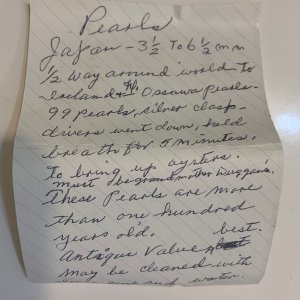 Pearls
Japan - 3½ To 6½ mm
½ way around world to
99 pearls, silver clasp -
divers went down, hold
breath for 5 minutes.
To bring up oysters.
must be grandmother
These Pearls are more
than one hundred
years old. best.
Antique Value
may be cleaned with
water.